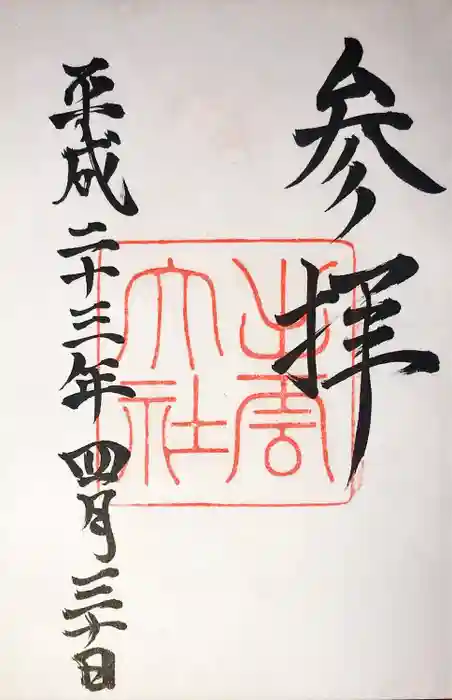 参拝
出雲
大社
平成二十三年四月三十日